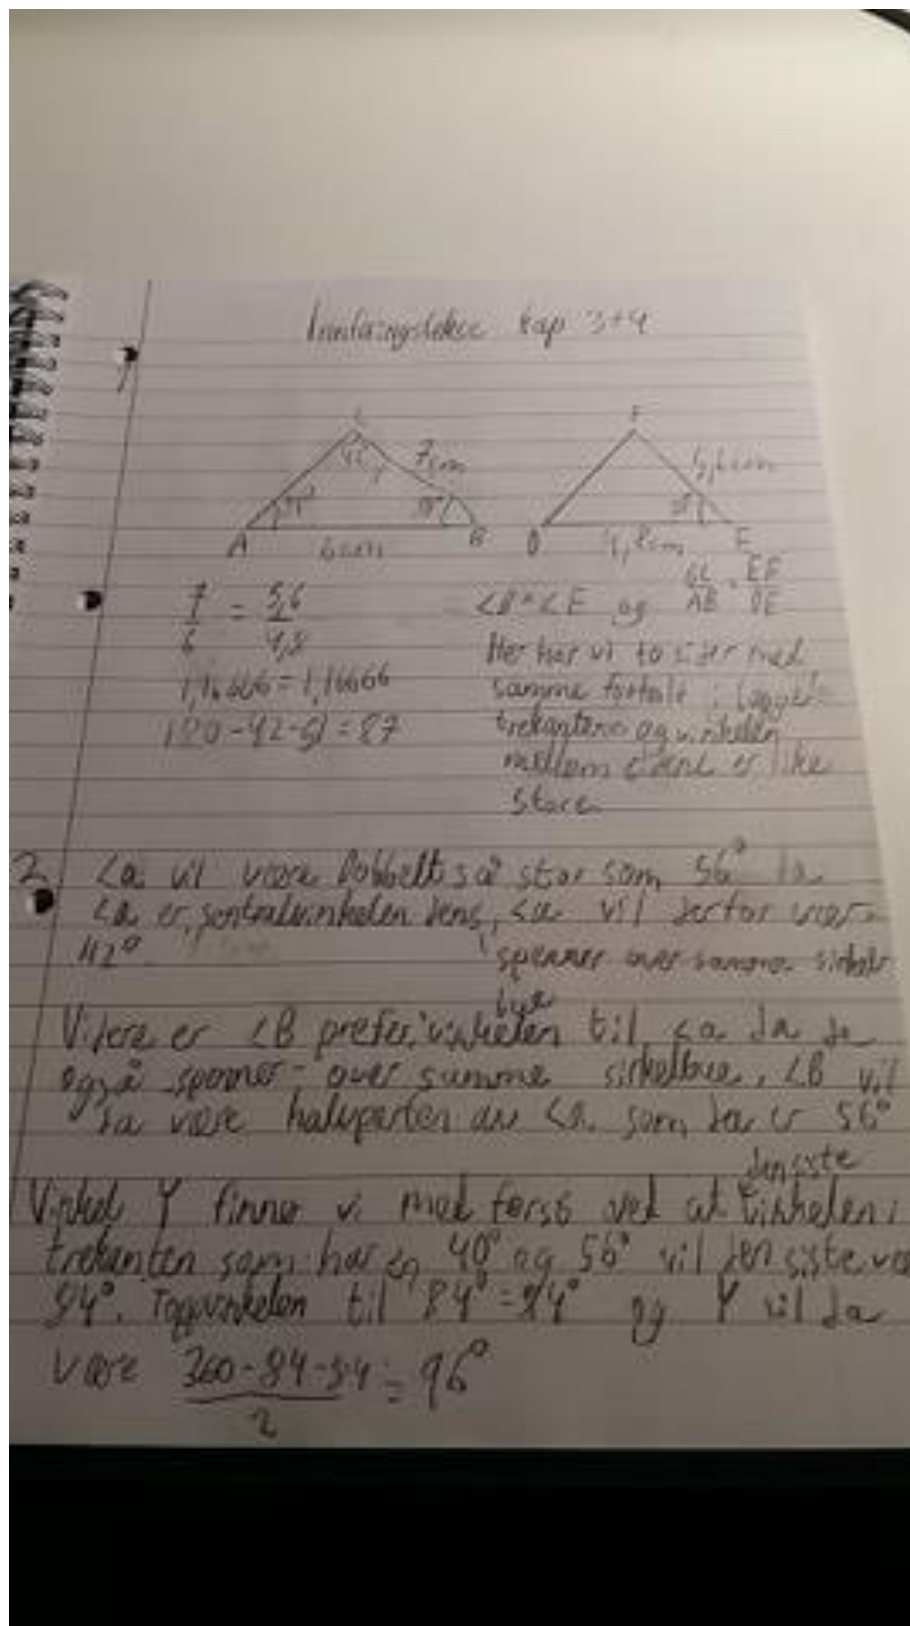 Innføringslekse kap 3+4
1
C F
42 7cm 5,6cm
A 6cm B D 4,8cm E
7/6 = 5,6/4,8 ∠B=∠E og BC/AB = EF/DE
1,16666 = 1,16666 Her har vi to sider med
180-42-51=87 samme forhold i begge
trekantene og vinkelen
mellom sidene er like
store
2 ∠a vil være dobbelt så stor som 56° da
∠a er sentralvinkelen dens, ∠a vil derfor være
112°. spenner over samme sirkel
bue
Videre er ∠B periferivinkelen til ∠a da de
også spenner over samme sirkelbue, ∠B vil
da være halvparten av ∠a som da er 56°
den siste
Vinkel Y finner vi med først ved at vinkelen i
trekanten som har en 40° og 56° vil den siste væ
84°. Toppvinkelen til 84°=84° og Y vil da
være (360-84-84)/2 = 96°